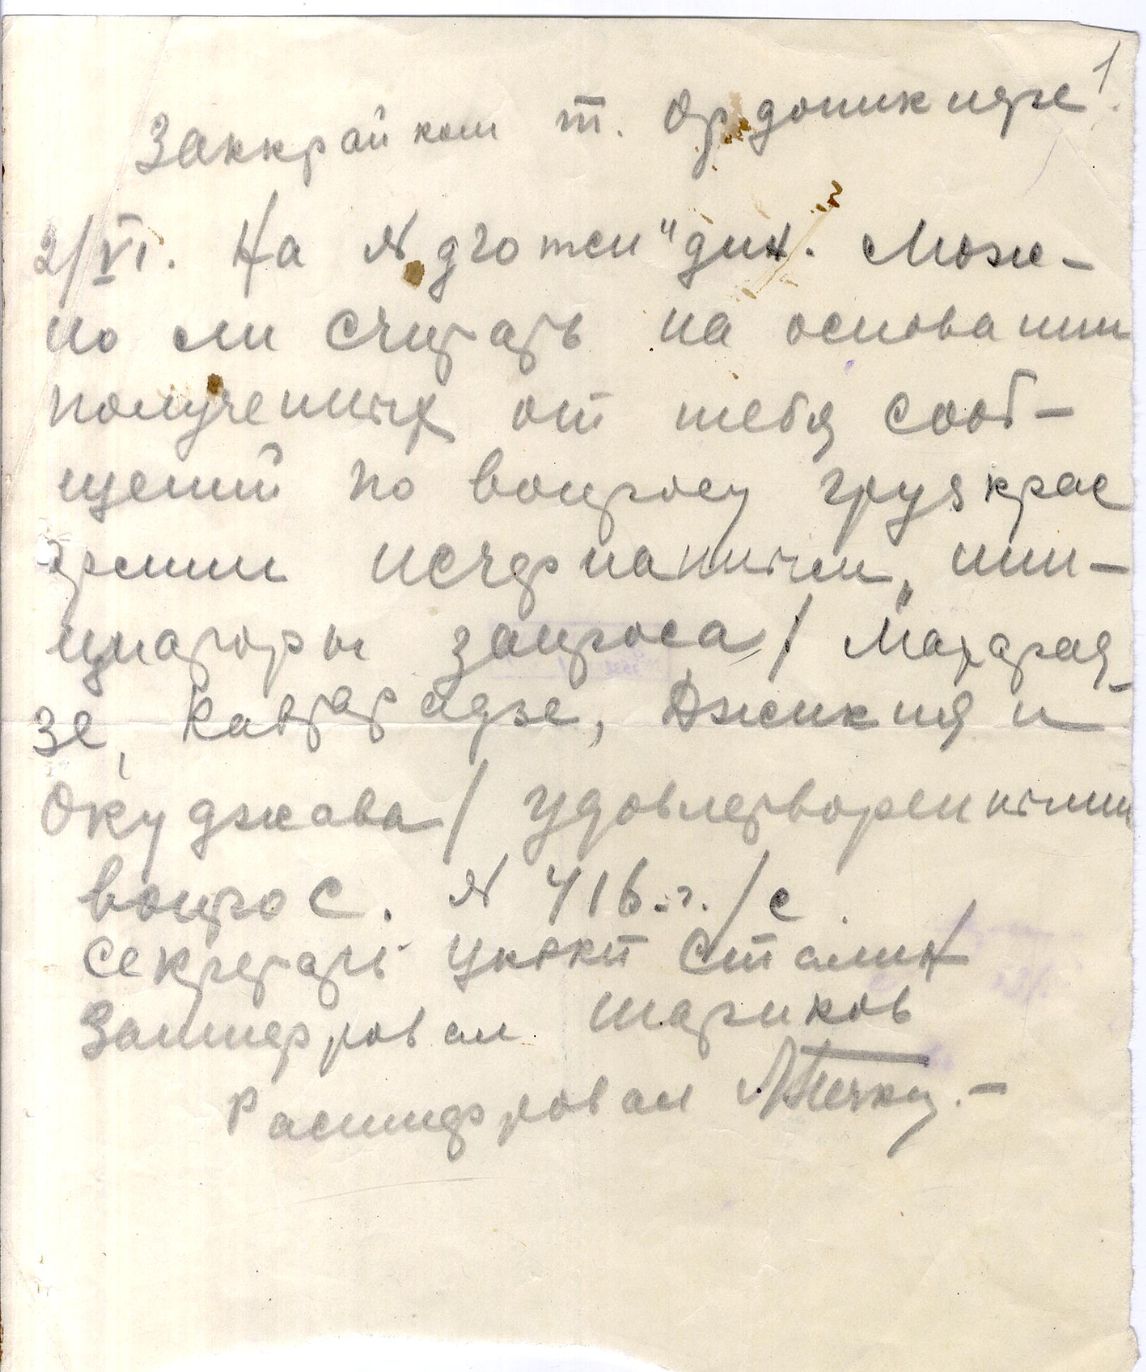 1
Заккрайком т. Орджоникидзе.
2/VI. На № дготси "дин. Мож-
но ли считать на основании
полученных от тебя сооб-
щений по вопросу грузкрас
армии исчерпанным, ини-
циаторы запроса / Махарад-
зе, Кавтарадзе, Джикия и
Окуджава / удовлетворенными
вопрос. № 416.г./с.
Секретарь Цккп Сталин
Зашифровал Шариков
Расшифровал